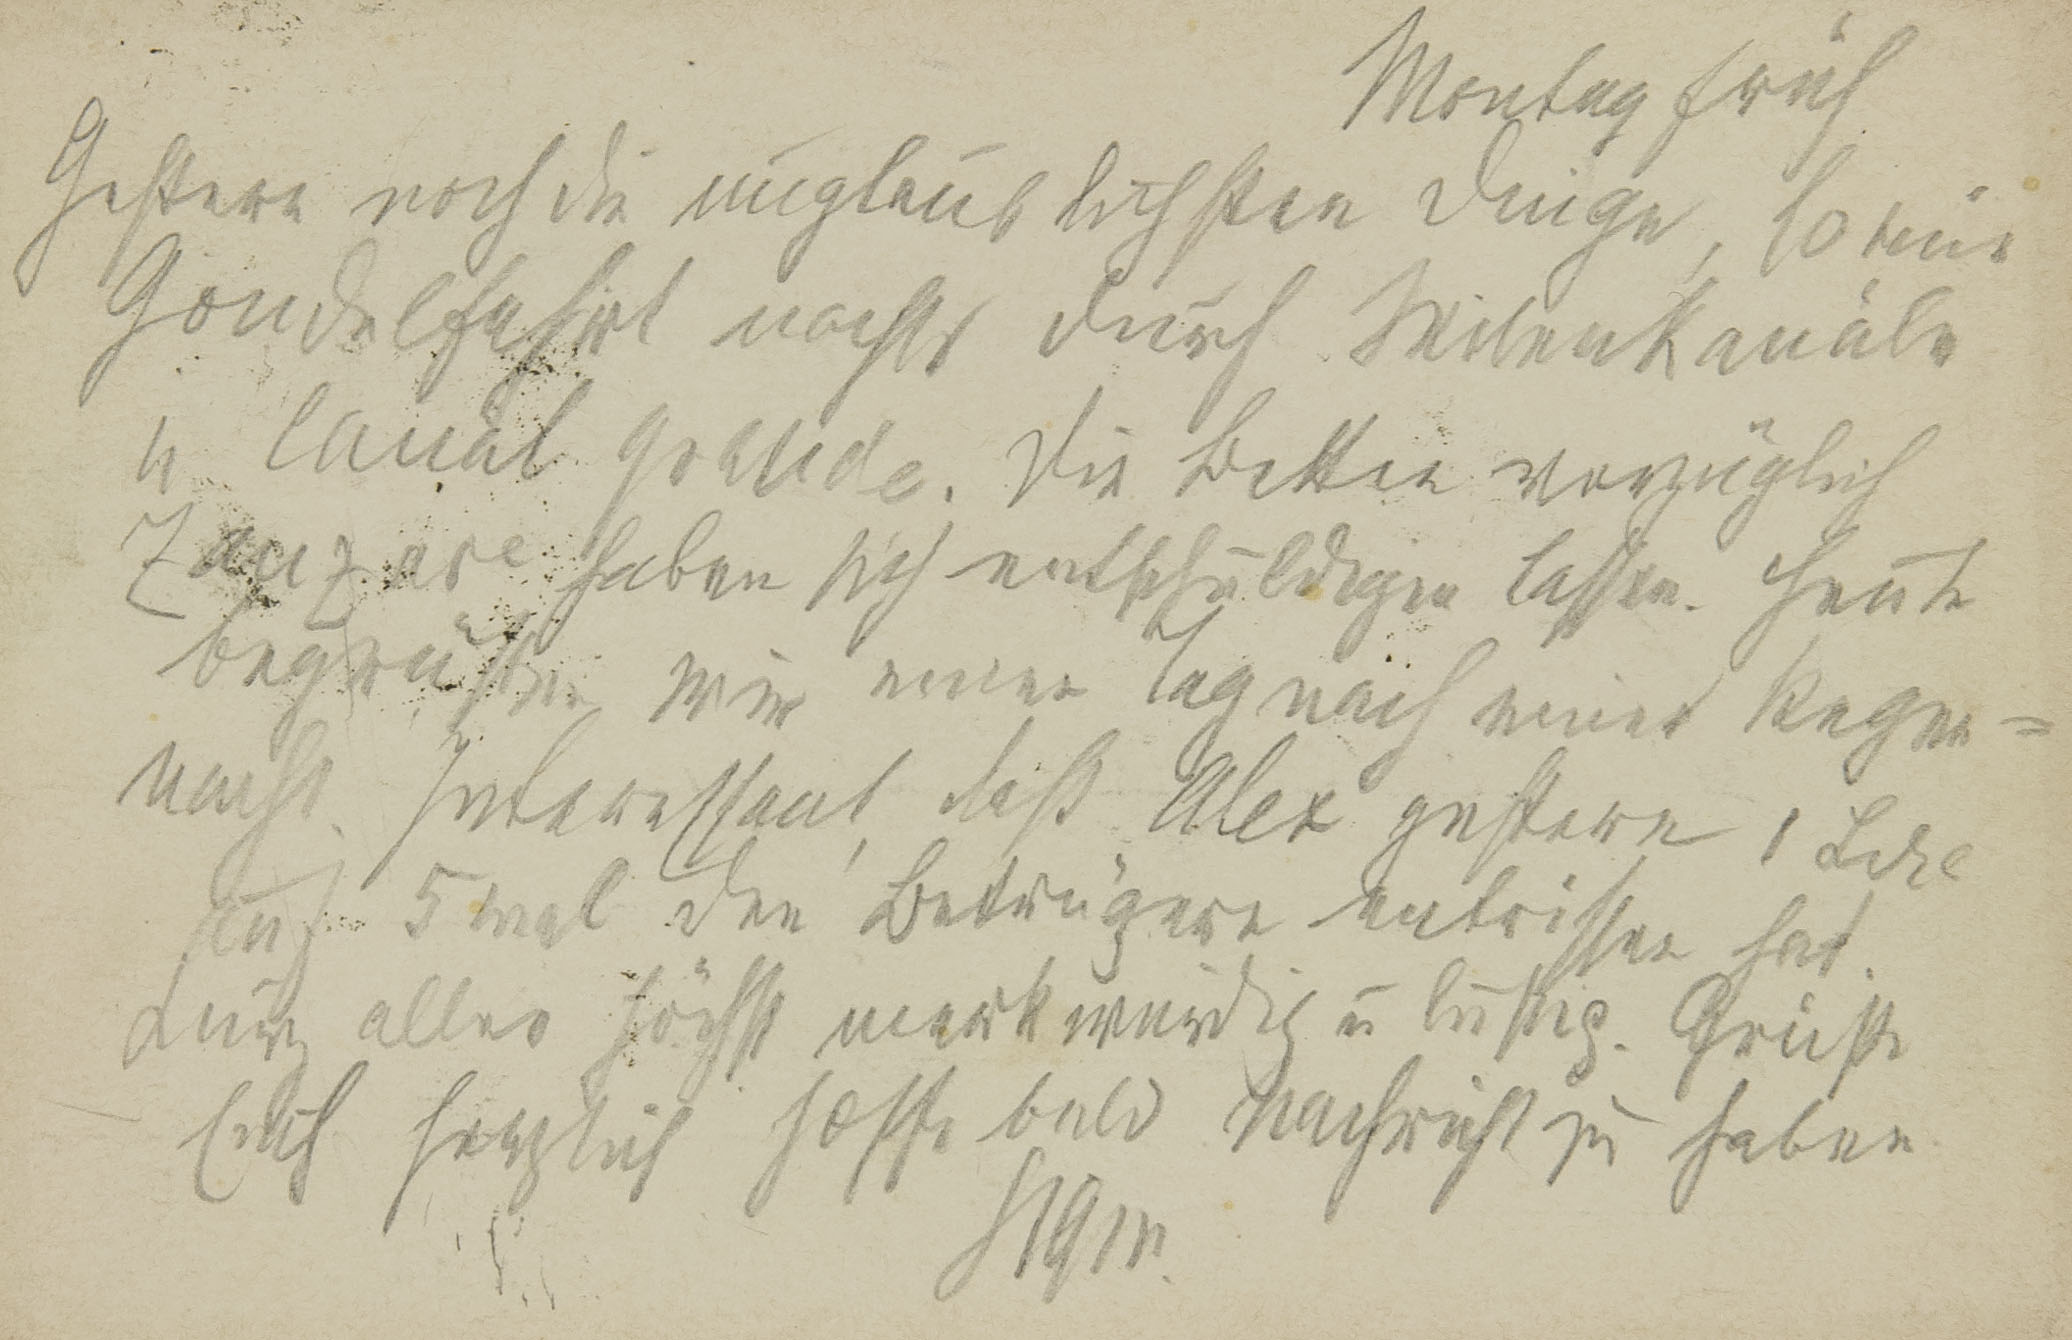 Montag früh
Gestern noch die unglaublichsten Dinge, so eine
Gondelfahrt nachts durch Seitenkanäle
u Canal grande. Die Betten vorzüglich
Zanzare haben sich entschuldigen lassen. Heute
begrüßen wir einen Tag nach einer Regen=
nacht. Interessant, daß Alex gestern 1 Lire
auf 5 mal den Betrügern entrissen hat.
Kurz alles höchst merkwürdig u lustig. Grüße
Euch herzlich hoffe bald Nachricht zu haben
Sigm.